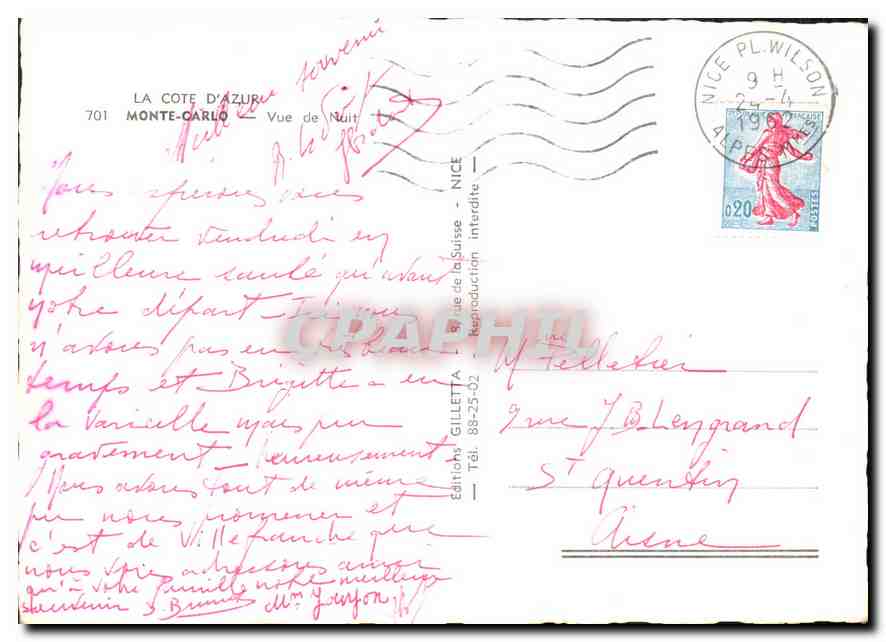 LA COTE D'AZUR
701 MONTE-CARLO — Vue de Nuit
Meilleur souvenir
Nous espérons vous
retrouver Vendredi en
meilleure santé qu'avant
votre départ - Ici nous
n'avons pas eu très beau
temps et Brigitte a eu
la Varicelle mais peu
gravement - heureusement -
Nous avons tout de même
pu nous promener et
c'est de Villefranche que
nous vous adressons ainsi
qu'à votre famille notre meilleur
souvenir
Editions GILLETTA - 8, rue de la Suisse - NICE
— Tél. 88-25-02 — Reproduction interdite —
CPAPHIL
NICE PL. WILSON
9 H
24-4
1962
ALPES MMES
0,20
POSTES
M Pelletier
9 rue J.B.
St Quentin
Aisne